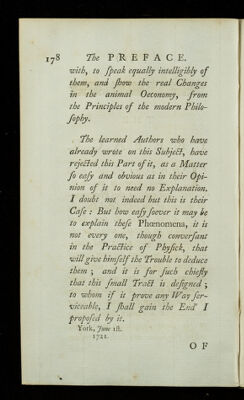 178 The PREFACE.
with, to ſpeak equally intelligibly of
them, and ſhow the real Changes
in the animal Oeconomy, from
the Principles of the modern Philo-
ſophy.
The learned Authors who have
already wrote on this Subject, have
rejected this Part of it, as a Matter
ſo eaſy and obvious as in their Opi-
nion of it to need no Explanation.
I doubt not indeed but this is their
Caſe : But how eaſy ſoever it may be
to explain theſe Phœnomena, it is
not every one, though converſant
in the Practice of Phyſick, that
will give himſelf the Trouble to deduce
them ; and it is for ſuch chiefly
that this ſmall Tract is deſigned ;
to whom if it prove any Way ſer-
viceable, I ſhall gain the End I
propoſed by it.
York, June 1ſt.
1721.
O F